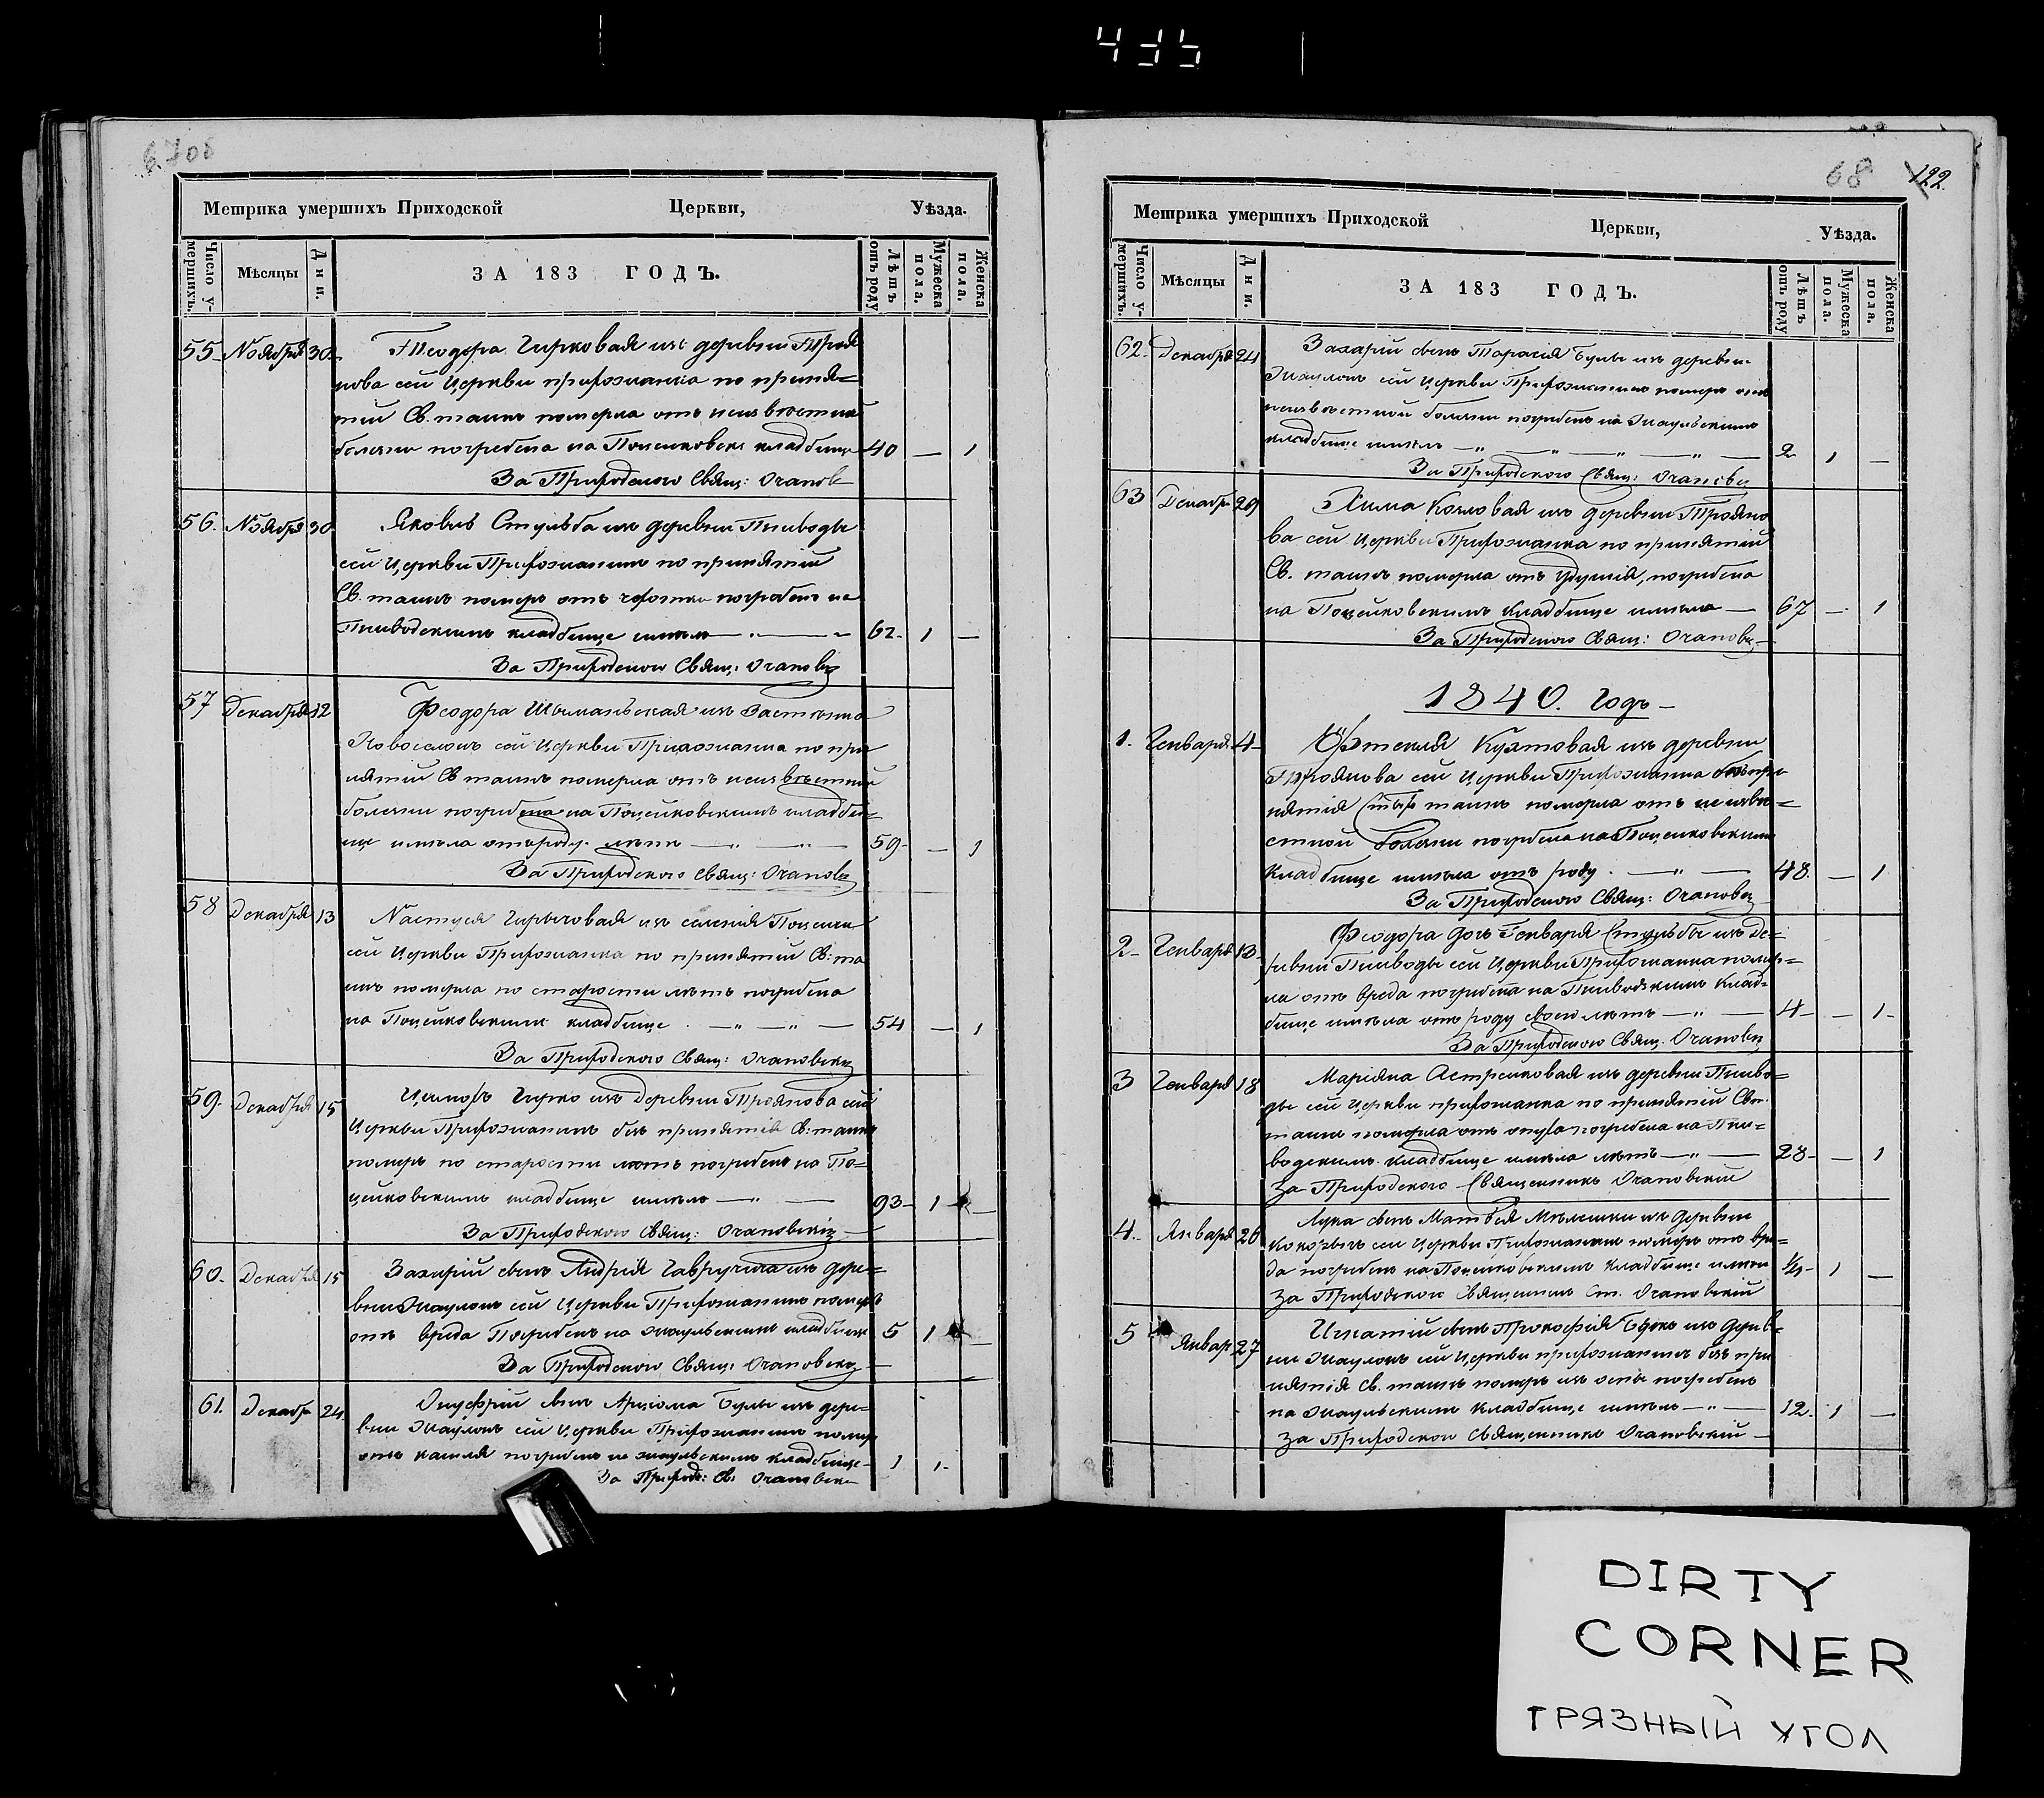 435
6.708
Метрика умершихъ Приходской Церкви, Уѣзда.
Число умершихъ. Мѣсяцы Дни. ЗА 183 ГОДЪ. Лѣтъ отъ роду Мужеска пола. Женска пола.
55 Ноября 30 Ѳеодора Чирковая изъ деревни Троя
нова сей Церкви прихожанка по приня=
тій Св. таинъ померла отъ неизвѣстной
болезни погребена на Поцейковск: кладбище 40 — 1
За Приходского Свящ: Очановс
56. Ноября 30 Яковъ Стульба изъ деревни Пниводы
сей Церкви Прихожанинъ по принятій
Св. таинъ померъ отъ погребенъ на
Пниводскимъ кладбище имѣлъ — " — 62 1 —
За Приходского Свящ: Очановск
57 Декабря 12 Ѳеодора изъ Застѣнка
сей Церкви Прихожанка по при
нятій Св таинъ померла отъ неизвѣстной
болезни погребена на Поцейковскимъ кладби=
ще имѣла отъ роду лѣтъ — " — 59 — 1
За Приходского Свящ: Очановск
58 Декабря 13 Настусія изъ селенія Поцейки
сей Церкви Прихожанка по принятій Св: та
инъ померла по старости лѣтъ погребена
на Поцейковскимъ кладбище — " — " — 54 — 1
За Приходского Свящ: Очановски
59. Декабря 15 Чирко изъ деревни Троянова сей
Церкви Прихожанинъ безъ принятія Св: таинъ
померъ по старости лѣтъ погребенъ на По=
цейковскимъ кладбище имѣлъ — " — 93 1 —
За Приходского Свящ: Очановскій
60. Декабря 15 Захарій сынъ Андрея изъ дере=
вни сей Церкви Прихожанинъ померъ
отъ вреда Погребенъ на кладбище 5 1 —
За Приходского Свящ: Очановски
61. Декабр 24 Онуфрій сынъ Арціома Булы изъ дере=
вни сей Церкви Прихожанинъ померъ
отъ кашля погребенъ на кладбище 1 1
За Приход: Св: Очановски
68 122.
Метрика умершихъ Приходской Церкви, Уѣзда.
Число умершихъ. Мѣсяцы Дни. ЗА 183 ГОДЪ. Лѣтъ отъ роду Мужеска пола. Женска пола.
62. Декабря 24 Захарій сынъ Тарасія Булы изъ деревни
сей Церкви Прихожанинъ померъ отъ
неизвѣстной болезни погребенъ на
кладбище имѣлъ — " — " — " — 2 1 —
За Приходского Свящ: Очановск
63 Декабр 29 Хима Козловая изъ деревни Трояно
ва сей Церкви Прихожанка по принятій
Св. таинъ померла отъ удушія, погребена
на Поцейковскимъ кладбище имѣла — 67 — 1
За Приходского Свящ: Очановск
1840. Годъ —
1. Генваря 4 изъ деревни
Троянова сей Церкви Прихожанка безъ при
нятія таинъ померла отъ неизвѣ=
стной болезни погребена на Поцейковскимъ
кладбище имѣла отъ роду — " — 48 — 1
За Приходского Свящ: Очановск
2 Генваря 13 Ѳеодора дочь Генваря Стульбы изъ де=
ревни Пниводы сей Церкви Прихожанка помер=
ла отъ вреда погребена на Пниводскимъ клад=
бище имѣла отъ роду своего лѣтъ — " — 4 — 1
За Приходского Свящ. Очановск
3 Генваря 18 Маріяна Астрейковая изъ деревни Пниво=
ды сей Церкви прихожанка по принятій Свт.
таинъ померла отъ погребена на Пни=
водскимъ кладбище имѣла лѣтъ — " — 28 — 1
За Приходского Священника Очановскій
4. Января 26 Лука сынъ Матѳея изъ деревни
сей Церкви Прихожанинъ померъ отъ вре=
да погребенъ на Поцейковскимъ кладбище имѣлъ 1/2 1 —
За Приходского Священника Ст. Очановскій
5 Январ 27 Игнатій сынъ Прокофія изъ дерев=
ни сей Церкви прихожанинъ безъ при
нятія Св. таинъ померъ изъ оспы погребенъ
на кладбище имѣлъ — " — 12. 1 —
За Приходского Священника Очановскій —
DIRTY
CORNER
ГРЯЗНЫЙ УГОЛ